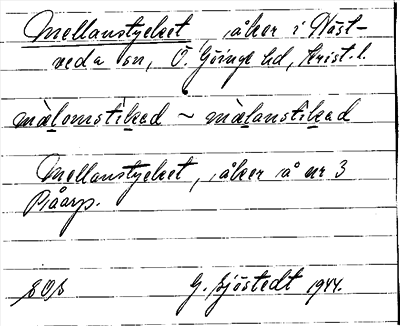 Mellanstycket, åker i Näst-
veda sn, Ö. Göinge hd, Krist. l.
mælomstikad ~ mælanstikad
Mellanstycket, åker å nr 3
Piåarp.
G. Sjöstedt 1944.